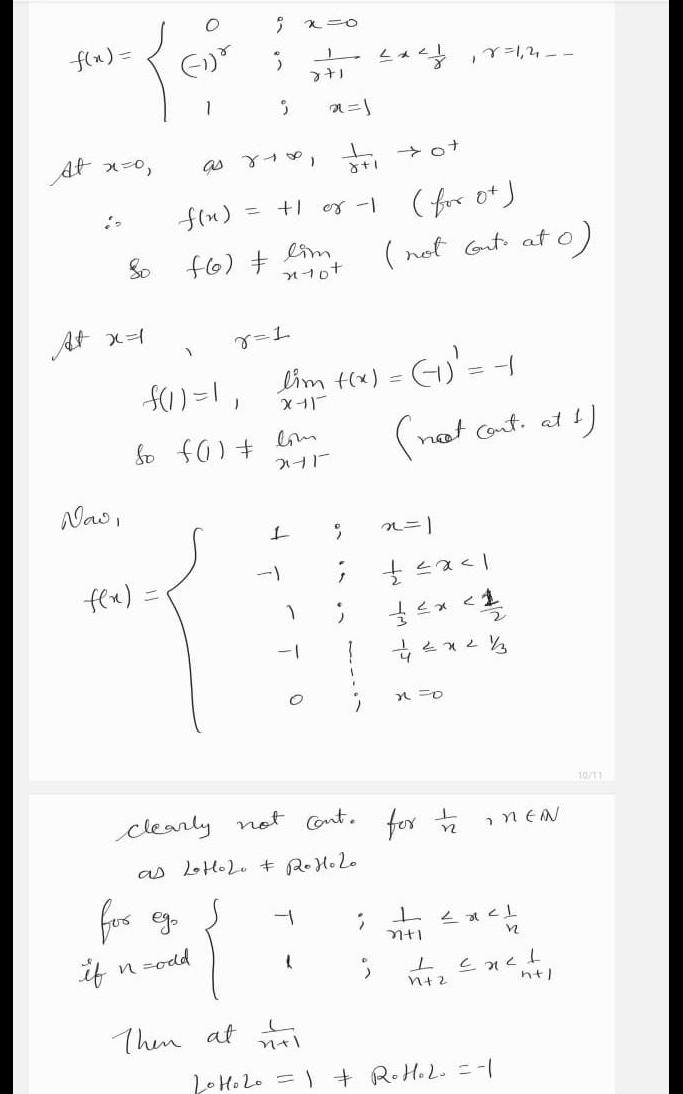 f(x) = { 0 ; x=0
(-1)^r ; 1/(r+1) ≤ x < 1/r , r=1,2,--
1 ; x=1
At x=0, as r→∞, 1/(r+1) → 0+
∴ f(x) = +1 or -1 (for 0+)
So f(0) ≠ lim x→0+ (not cont. at 0)
At x=1 , r=1
f(1)=1, lim x→1- f(x) = (-1)^1 = -1
So f(1) ≠ lim x→1- (not cont. at 1)
Now,
f(x) = { 1 ; x=1
-1 ; 1/2 ≤ x < 1
1 ; 1/3 ≤ x < 1/2
-1 ; 1/4 ≤ x < 1/3
0 ; x=0
10/11
clearly not cont. for 1/n , n∈N
as L.H.L. ≠ R.H.L.
for eg. { -1 ; 1/(n+1) ≤ x < 1/n
if n=odd 1 ; 1/(n+2) ≤ x < 1/(n+1)
Then at 1/(n+1)
L.H.L. = 1 ≠ R.H.L. = -1